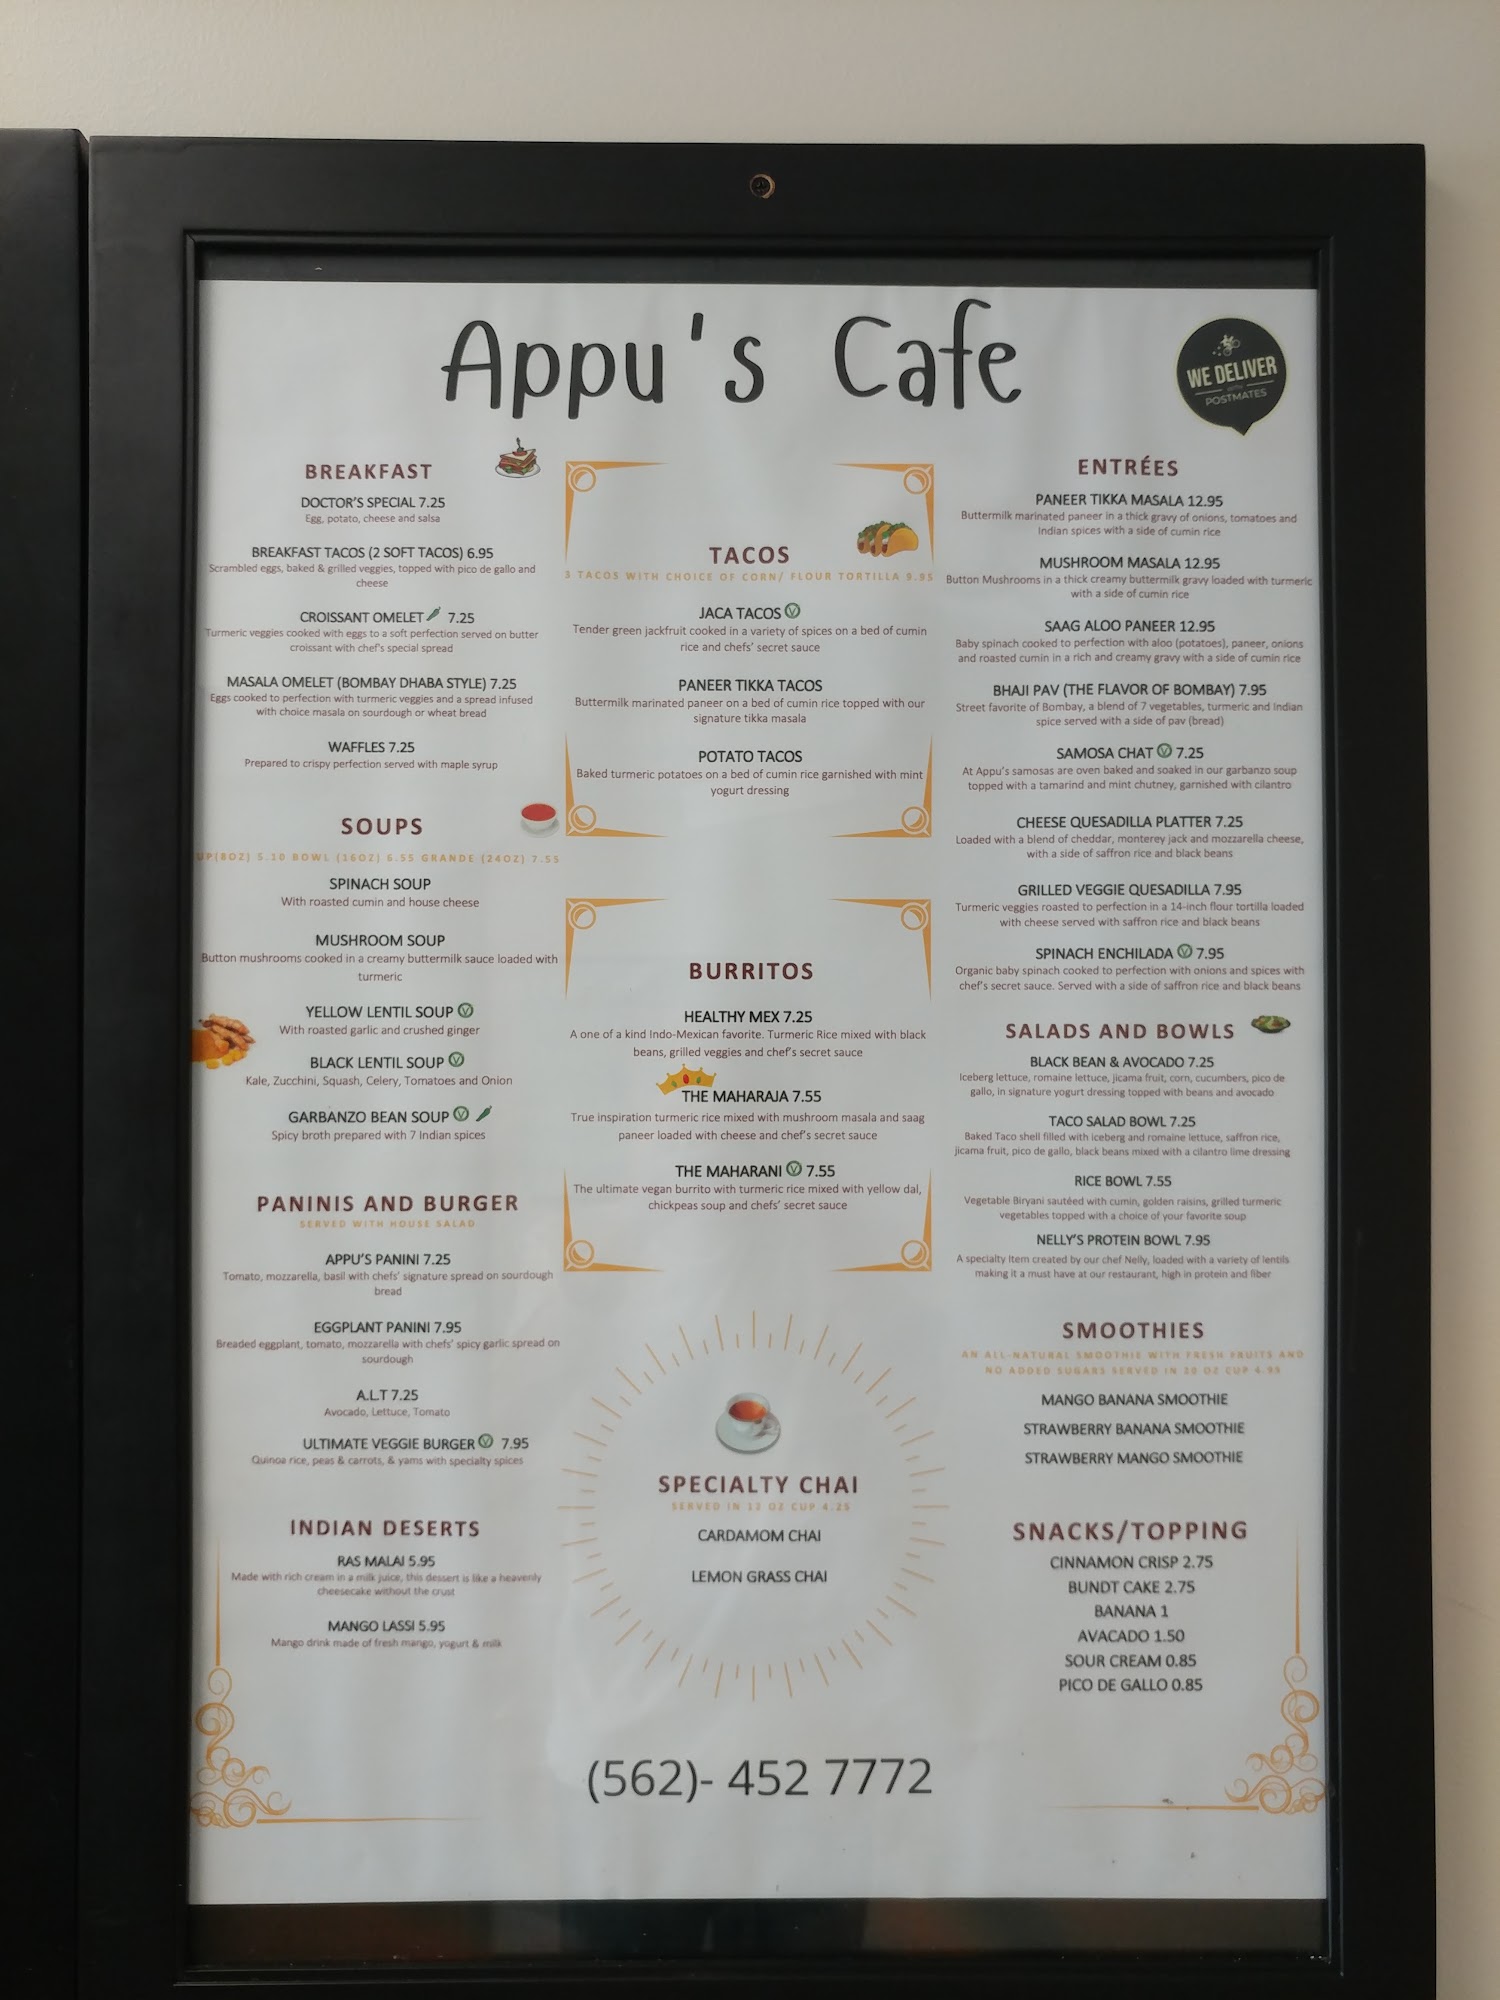 Appu's Cafe
WE DELIVER
WITH
POSTMATES
BREAKFAST
DOCTOR'S SPECIAL 7.25
Egg, potato, cheese and salsa
BREAKFAST TACOS (2 SOFT TACOS) 6.95
Scrambled eggs, baked & grilled veggies, topped with pico de gallo and
cheese
CROISSANT OMELET 7.25
Turmeric veggies cooked with eggs to a soft perfection served on butter
croissant with chef's special spread
MASALA OMELET (BOMBAY DHABA STYLE) 7.25
Eggs cooked to perfection with turmeric veggies and a spread infused
with choice masala on sourdough or wheat bread
WAFFLES 7.25
Prepared to crispy perfection served with maple syrup
SOUPS
UP(8OZ) 5.10 BOWL (16OZ) 6.55 GRANDE (24OZ) 7.55
SPINACH SOUP
With roasted cumin and house cheese
MUSHROOM SOUP
Button mushrooms cooked in a creamy buttermilk sauce loaded with
turmeric
YELLOW LENTIL SOUP V
With roasted garlic and crushed ginger
BLACK LENTIL SOUP V
Kale, Zucchini, Squash, Celery, Tomatoes and Onion
GARBANZO BEAN SOUP V
Spicy broth prepared with 7 Indian spices
PANINIS AND BURGER
SERVED WITH HOUSE SALAD
APPU'S PANINI 7.25
Tomato, mozzarella, basil with chefs' signature spread on sourdough
bread
EGGPLANT PANINI 7.95
Breaded eggplant, tomato, mozzarella with chefs' spicy garlic spread on
sourdough
A.L.T 7.25
Avocado, Lettuce, Tomato
ULTIMATE VEGGIE BURGER V 7.95
Quinoa rice, peas & carrots, & yams with specialty spices
INDIAN DESERTS
RAS MALAI 5.95
Made with rich cream in a milk juice, this dessert is like a heavenly
cheesecake without the crust
MANGO LASSI 5.95
Mango drink made of fresh mango, yogurt & milk
TACOS
3 TACOS WITH CHOICE OF CORN/ FLOUR TORTILLA 9.95
JACA TACOS V
Tender green jackfruit cooked in a variety of spices on a bed of cumin
rice and chefs' secret sauce
PANEER TIKKA TACOS
Buttermilk marinated paneer on a bed of cumin rice topped with our
signature tikka masala
POTATO TACOS
Baked turmeric potatoes on a bed of cumin rice garnished with mint
yogurt dressing
BURRITOS
HEALTHY MEX 7.25
A one of a kind Indo-Mexican favorite. Turmeric Rice mixed with black
beans, grilled veggies and chef's secret sauce
THE MAHARAJA 7.55
True inspiration turmeric rice mixed with mushroom masala and saag
paneer loaded with cheese and chef's secret sauce
THE MAHARANI V 7.55
The ultimate vegan burrito with turmeric rice mixed with yellow dal,
chickpeas soup and chefs' secret sauce
SPECIALTY CHAI
SERVED IN 12 OZ CUP 4.25
CARDAMOM CHAI
LEMON GRASS CHAI
ENTRÉES
PANEER TIKKA MASALA 12.95
Buttermilk marinated paneer in a thick gravy of onions, tomatoes and
Indian spices with a side of cumin rice
MUSHROOM MASALA 12.95
Button Mushrooms in a thick creamy buttermilk gravy loaded with turmeric
with a side of cumin rice
SAAG ALOO PANEER 12.95
Baby spinach cooked to perfection with aloo (potatoes), paneer, onions
and roasted cumin in a rich and creamy gravy with a side of cumin rice
BHAJI PAV (THE FLAVOR OF BOMBAY) 7.95
Street favorite of Bombay, a blend of 7 vegetables, turmeric and Indian
spice served with a side of pav (bread)
SAMOSA CHAT V 7.25
At Appu's samosas are oven baked and soaked in our garbanzo soup
topped with a tamarind and mint chutney, garnished with cilantro
CHEESE QUESADILLA PLATTER 7.25
Loaded with a blend of cheddar, monterey jack and mozzarella cheese,
with a side of saffron rice and black beans
GRILLED VEGGIE QUESADILLA 7.95
Turmeric veggies roasted to perfection in a 14-inch flour tortilla loaded
with cheese served with saffron rice and black beans
SPINACH ENCHILADA V 7.95
Organic baby spinach cooked to perfection with onions and spices with
chef's secret sauce. Served with a side of saffron rice and black beans
SALADS AND BOWLS
BLACK BEAN & AVOCADO 7.25
Iceberg lettuce, romaine lettuce, jicama fruit, corn, cucumbers, pico de
gallo, in signature yogurt dressing topped with beans and avocado
TACO SALAD BOWL 7.25
Baked Taco shell filled with iceberg and romaine lettuce, saffron rice,
jicama fruit, pico de gallo, black beans mixed with a cilantro lime dressing
RICE BOWL 7.55
Vegetable Biryani sautéed with cumin, golden raisins, grilled turmeric
vegetables topped with a choice of your favorite soup
NELLY'S PROTEIN BOWL 7.95
A specialty Item created by our chef Nelly, loaded with a variety of lentils
making it a must have at our restaurant, high in protein and fiber
SMOOTHIES
AN ALL-NATURAL SMOOTHIE WITH FRESH FRUITS AND
NO ADDED SUGARS SERVED IN 20 OZ CUP 4.95
MANGO BANANA SMOOTHIE
STRAWBERRY BANANA SMOOTHIE
STRAWBERRY MANGO SMOOTHIE
SNACKS/TOPPING
CINNAMON CRISP 2.75
BUNDT CAKE 2.75
BANANA 1
AVACADO 1.50
SOUR CREAM 0.85
PICO DE GALLO 0.85
(562)- 452 7772